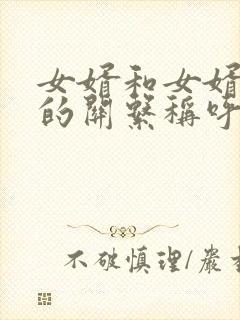 女婿和女婿
的關繫稱呼
不破慎理/嚴